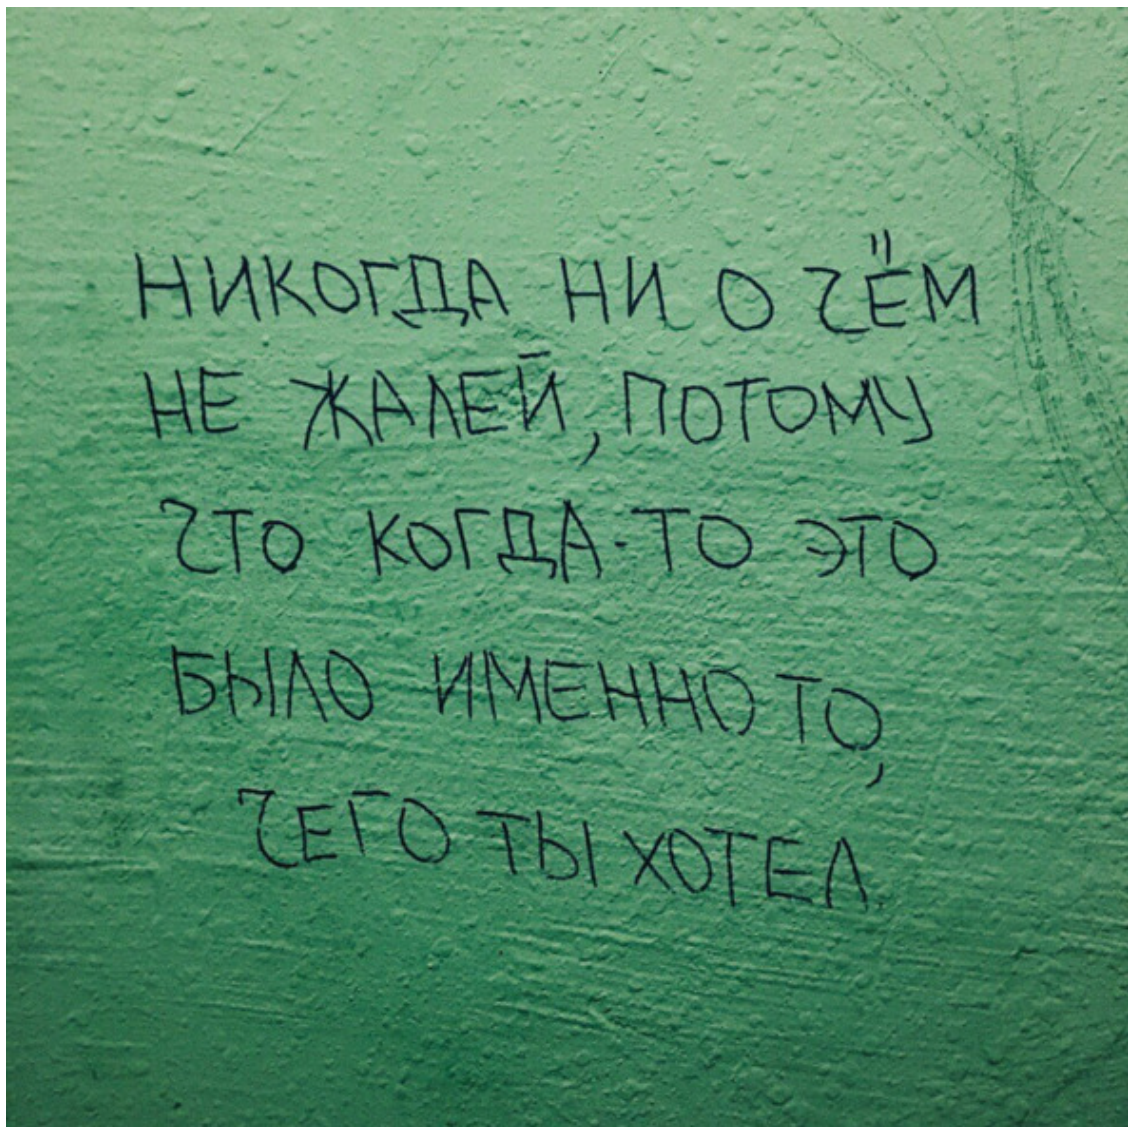 НИКОГДА НИ О ЧЁМ
НЕ ЖАЛЕЙ, ПОТОМУ
ЧТО КОГДА-ТО ЭТО
БЫЛО ИМЕННО ТО,
ЧЕГО ТЫ ХОТЕЛ.